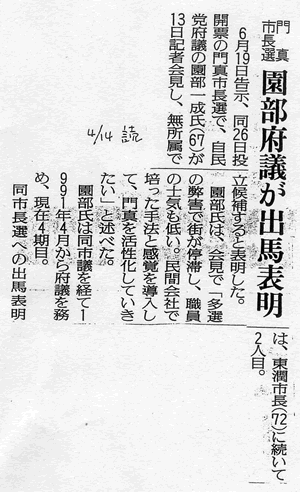 門真
市長選
園部府議が出馬表明
6月19日告示、同26日投
開票の門真市長選で、自民
党府議の園部一成氏(67)が
13日記者会見し、無所属で
立候補すると表明した。
園部氏は、会見で「多選
の弊害で街が停滞し、職員
の士気も低い。民間会社で
培った手法と感覚を導入し
て、門真を活性化していき
たい」と述べた。
園部氏は同市議を経て1
991年4月から府議を務
め、現在4期目。
同市長選への出馬表明
は、東潤市長(72)に続いて
2人目。
4/14 読